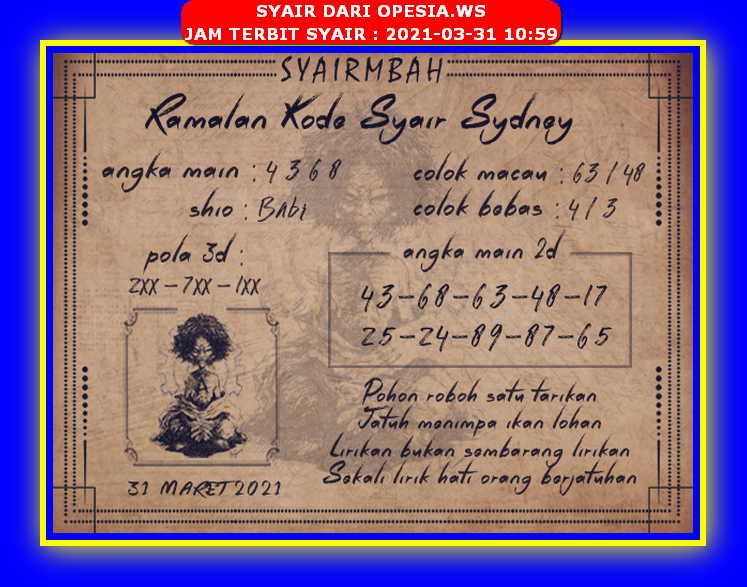 SYAIR DARI OPESIA.WS
JAM TERBIT SYAIR : 2021-03-31 10:59
SYAIRMBAH
Ramalan Kode Syair Sydney
angka main : 4 3 6 8
colok macau : 63 / 48
shio : Babi
colok bebas : 4 / 3
pola 3d :
2XX – 7XX – 1XX
angka main 2d
43–68–63–48–17
25–24–89–87–65
Pohon roboh satu tarikan
Jatuh menimpa ikan lohan
Lirikan bukan sembarang lirikan
Sekali lirik hati orang berjatuhan
31 MARET 2021